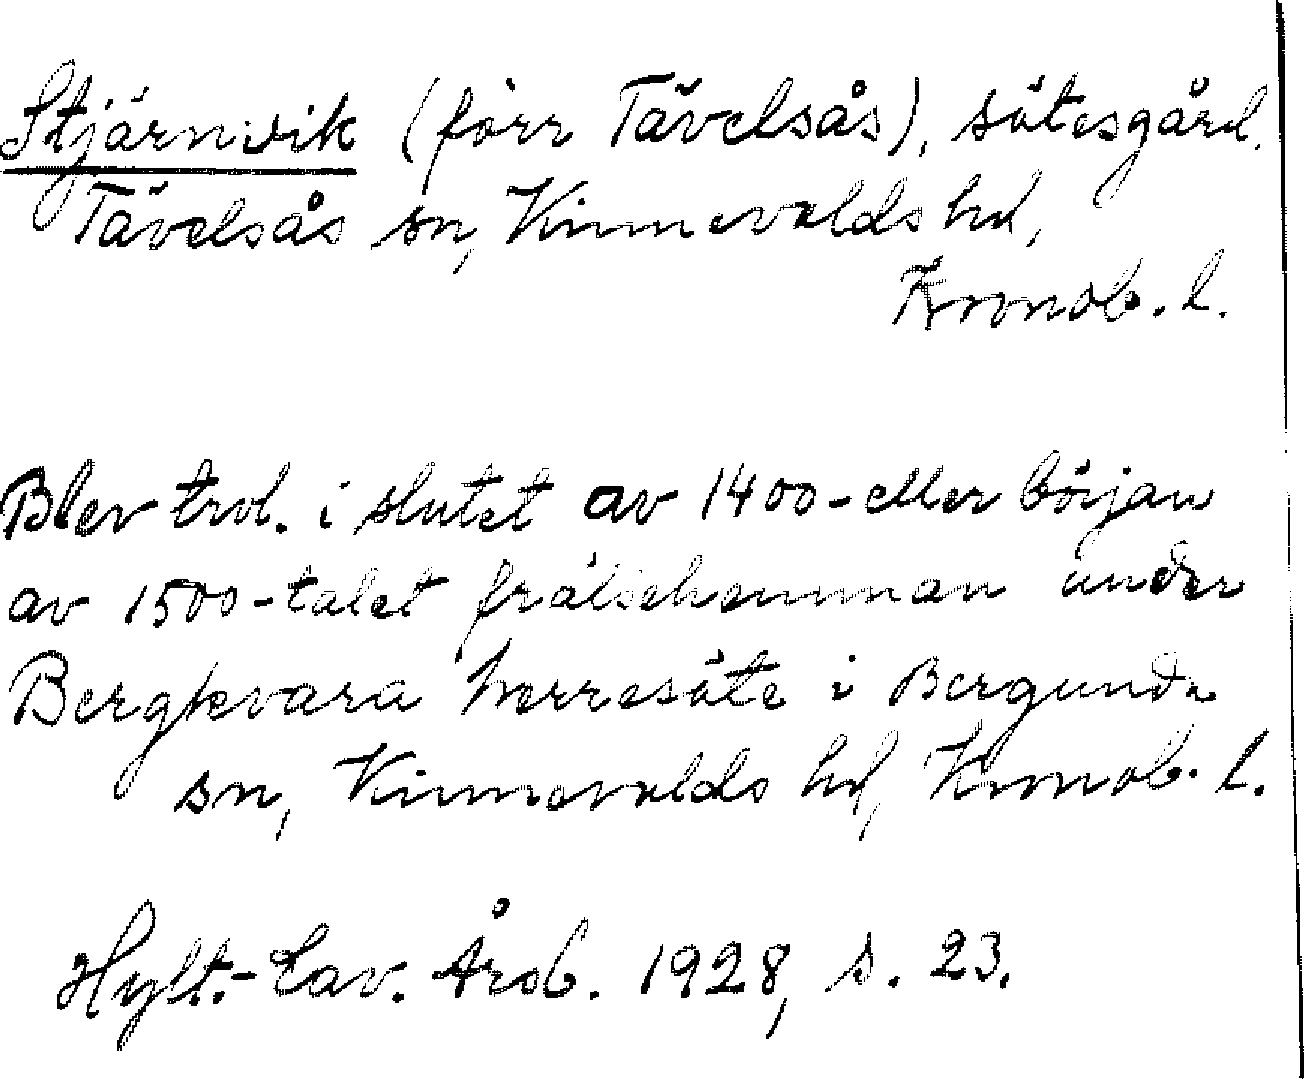 Stjärnvik (förr Tävelsås), sätesgård.
Tävelsås sn, Kinnevalds hd,
Kronob. l.
Blev trol. i slutet av 1400- eller början
av 1500-talet frälsehemman under
Bergkvara herresäte i Bergunda
sn, Kinnevalds hd, Kronob. l.
Hylt.-Cav. Årsb. 1928, s. 23.